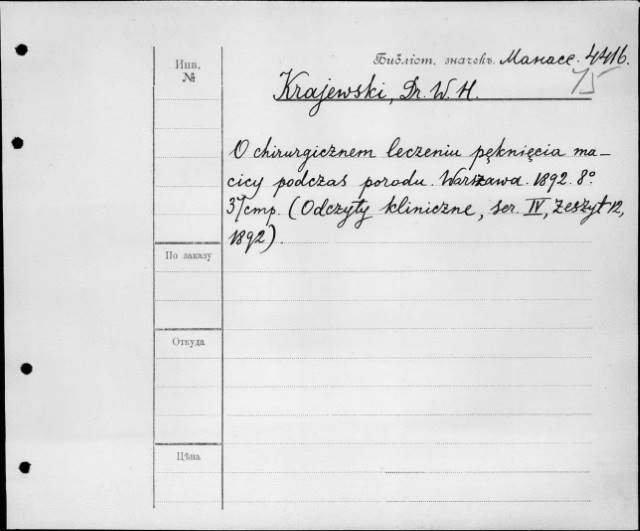 Инв.
№
Библіот. значекъ. Манасс. 4416.
Krajewski, Dr. W. H.
O chirurgicznem leczeniu pęknięcia ma-
cicy podczas porodu. Warszawa. 1892. 8°.
(Odczyty kliniczne, ser. IV, zeszyt 12,
1892).
По заказу
Откуда
Цѣна